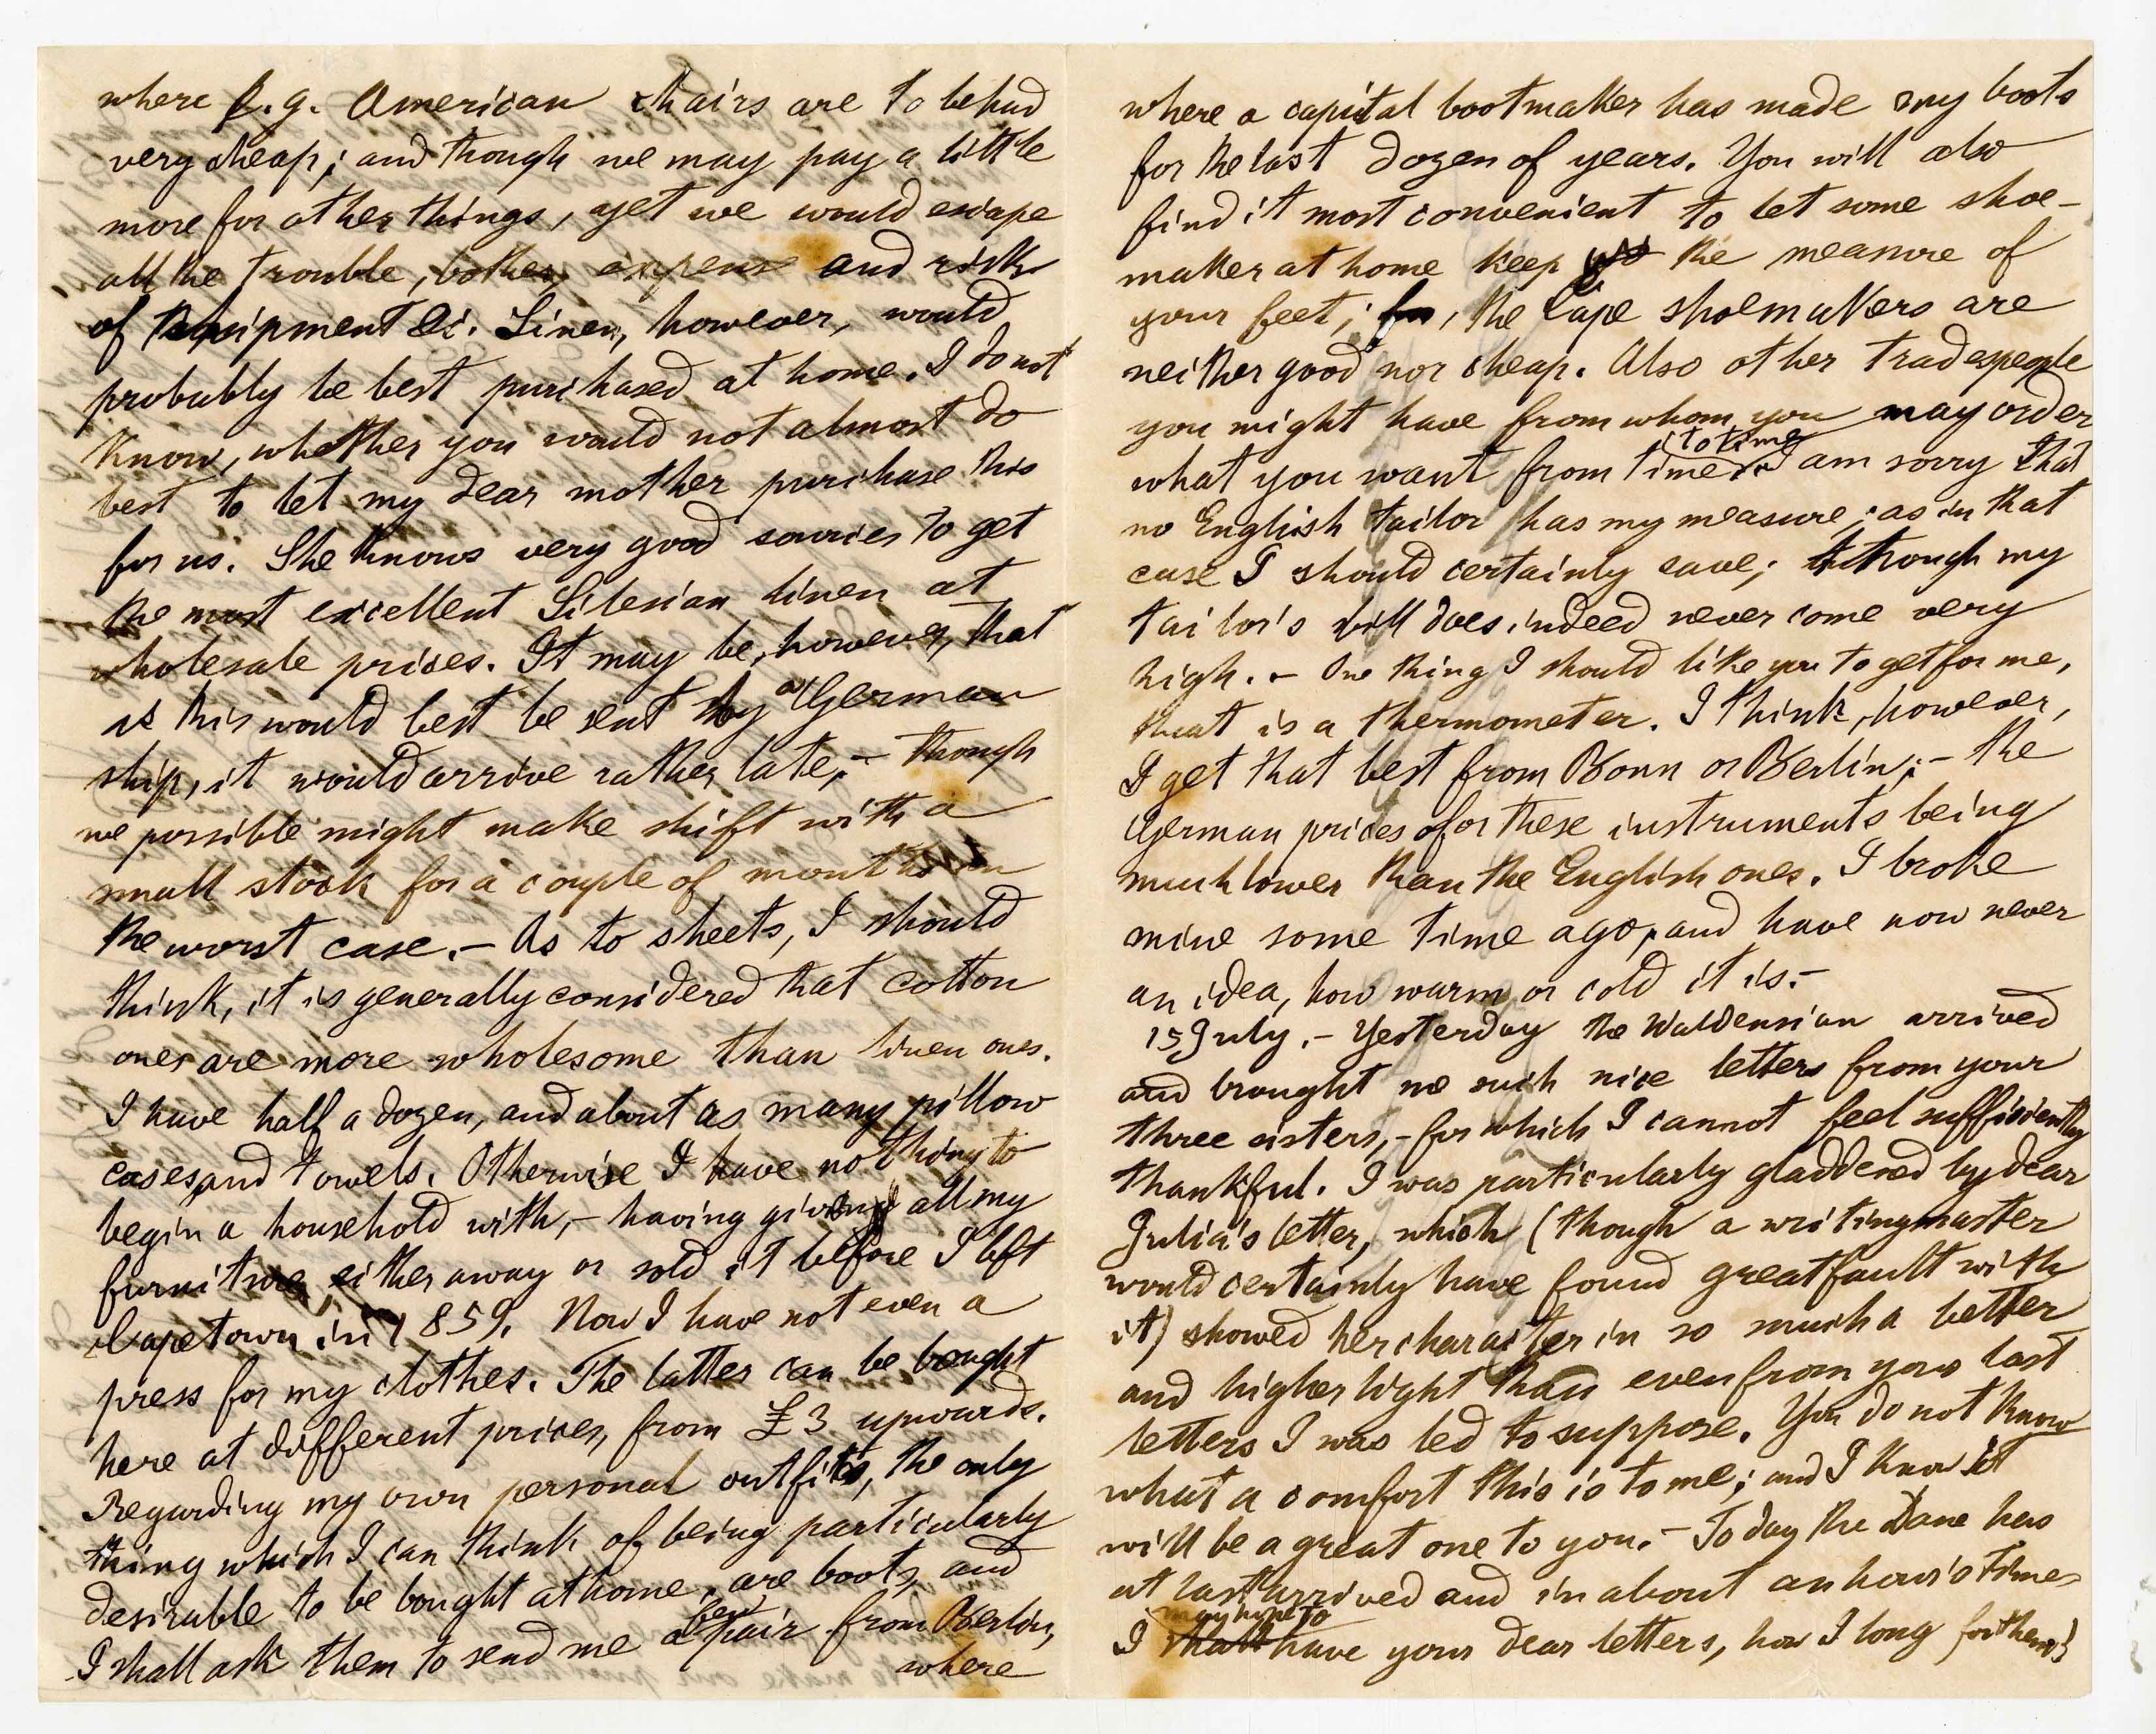 where e.g. American chairs are to be had
very cheap; and though we may pay a little
more for other things, yet we would escape
all the trouble, bother, expense and risk
of equipment &c. Linen, however, would
probably be best purchased at home. I do not
know, whether you would not almost do
best to let my dear mother purchase this
for us. She knows very good sources to get
the most excellent Silesian linen at
wholesale prices. It may be, however, that
as this would best be sent by a German
ship, it would arrive rather late, – though
we possible might make shift with a
small stock for a couple of months in
the worst case. – As to sheets, I should
think, it is generally considered that cotton
ones are more wholesome than linen ones.
I have half a dozen, and about as many pillow
cases, and towels. Otherwise I have nothing to
begin a household with, – having given all my
furniture either away or sold it before I left
Capetown in 1859. Now I have not even a
press for my clothes. The latter can be bought
here at different prices, from £3 upwards.
Regarding my own personal outfits, the only
thing which I can think of being particularly
desirable to be bought at home, are boots, and
I shall ask them to send me a few pair from Berlin,
where
where a capital bootmaker has made my boots
for the last dozen of years. You will also
find it most convenient to let some shoe-
maker at home keep the measure of
your feet; for, the Cape shoemakers are
neither good nor cheap. Also other tradespeople
you might have from whom you may order
what you want from time to time. I am sorry that
no English tailor has my measure; as in that
case I should certainly save; though my
tailor's bill does indeed never come very
high. – One thing I should like you to get for me,
that is a thermometer. I think, however,
I get that best from Bonn or Berlin; – the
German prices of or these instruments being
much lower than the English ones. I broke
mine some time ago, and have now never
an idea, how warm or cold it is. –
15 July. – Yesterday the Waldensian arrived
and brought me such nice letters from your
three sisters, – for which I cannot feel sufficiently
thankful. I was particularly gladdened by dear
Julia's letter, which (though a writingmaster
would certainly have found great fault with
it) showed her character in so much a better
and higher light than even from your last
letters I was led to suppose. You do not know
what a comfort this is to me; and I know it
will be a great one to you. – To day the Dane has
at last arrived and in about an hour's time
I shall may hope to have your dear letters, how I long for them!